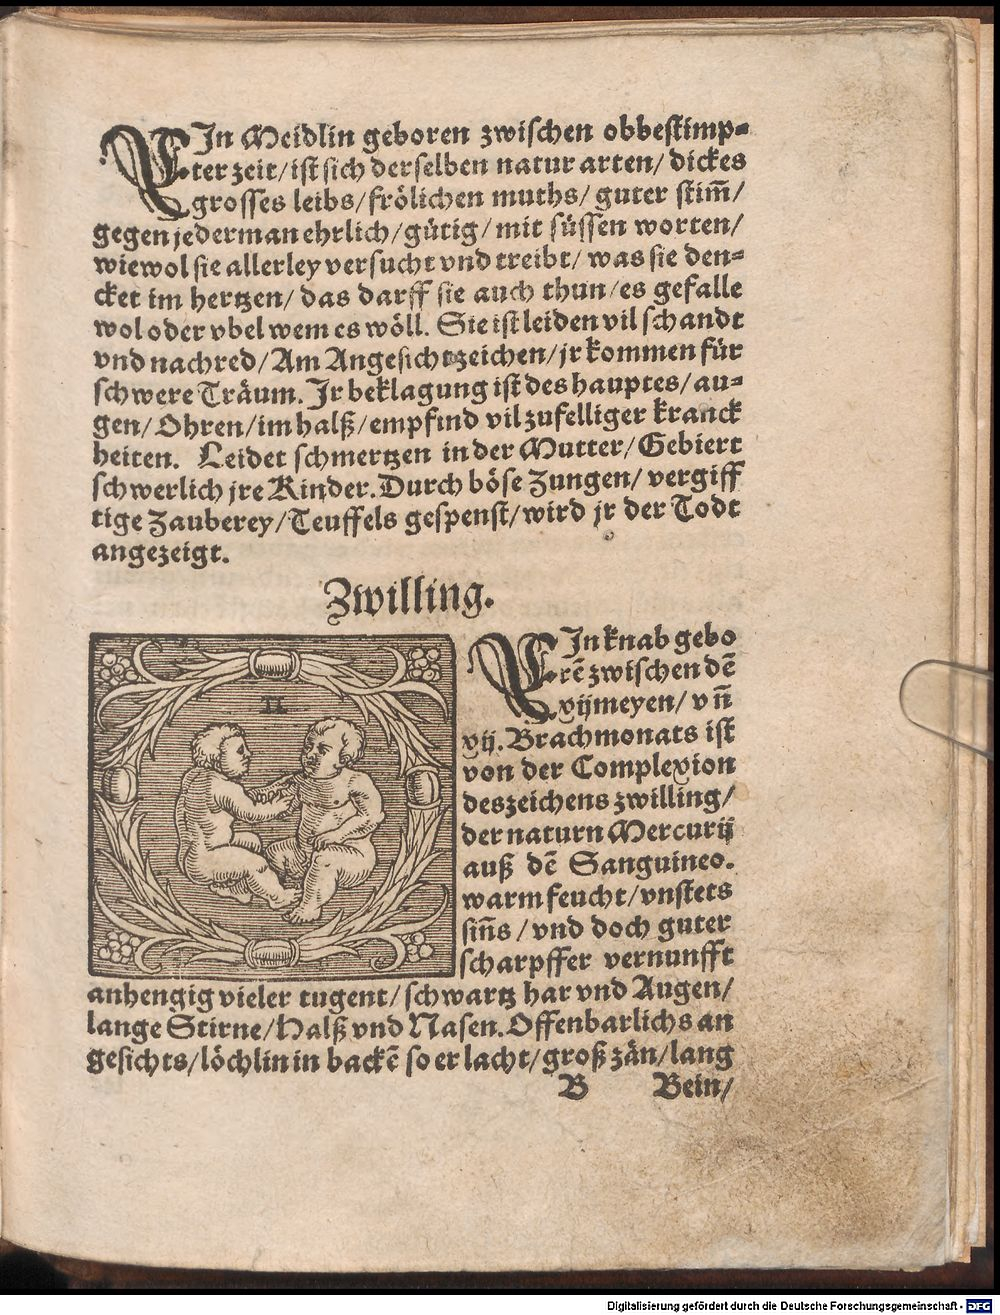 EIn Meidlin geboren zwischen obbestimp⸗
ter zeit/ ist sich derselben natur arten/ dickes
grosses leibs/ frölichen muths/ guter stim̃/
gegen jederman ehrlich/ gütig/ mit süssen worten/
wiewol sie allerley versucht vnd treibt/ was sie den⸗
cket im hertzen/ das darff sie auch thun/ es gefalle
wol oder vbel wem es wöll. Sie ist leiden vil schandt
vnd nachred/ Am Angesicht zeichen/ jr kommen für
schwere Träum. Jr beklagung ist des hauptes/ au⸗
gen/ Ohren/ im halß/ empfind vil zufelliger kranck
heiten. Leidet schmertzen in der Mutter/ Gebiert
schwerlich jre Kinder. Durch böse Zungen/ vergiff
tige Zauberey/ Teuffels gespenst/ wird jr der Todt
angezeigt.
Zwilling.
II
EIn knab gebo
rẽ zwischen dẽ
xij meyen/ vñ
xij. Brachmonats ist
von der Complexion
des zeichens zwilling/
der naturn Mercurij
auß dẽ Sanguineo.
warm feucht/ vnstets
siñs/ vnd doch guter
scharpffer vernunfft
anhengig vieler tugent/ schwartz har vnd Augen/
lange Stirne/ Halß vnd Nasen. Offenbarlichs an
gesichts/ löchlin in backẽ so er lacht/ groß zän/ lang
B Bein/
Digitalisierung gefördert durch die Deutsche Forschungsgemeinschaft - DFG